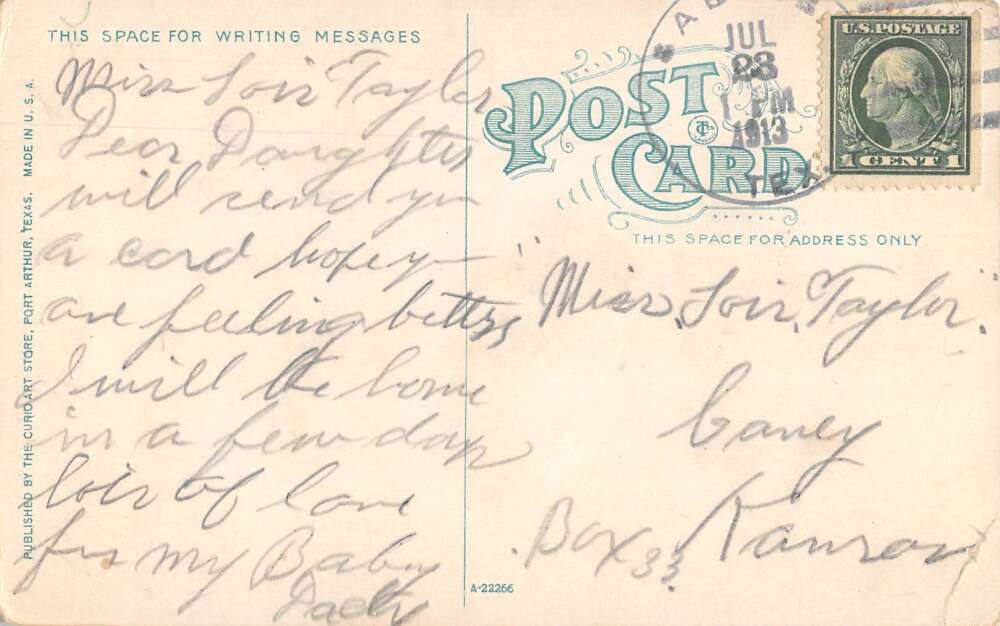 THIS SPACE FOR WRITING MESSAGES
Miss Lois Taylor
Dear Daughter
will send you
a card hope you
are feeling better
I will be home
in a few days
lots of love
for my Baby
Daddy
PUBLISHED BY THE CURIO ART STORE, PORT ARTHUR, TEXAS. MADE IN U.S.A.
POST CARD
JUL
23
1 PM
1913
TEX
U.S. POSTAGE
1 CENT 1
THIS SPACE FOR ADDRESS ONLY
"Miss, Lois, Taylor,"
Caney
Kansas
Box 33
A-22266